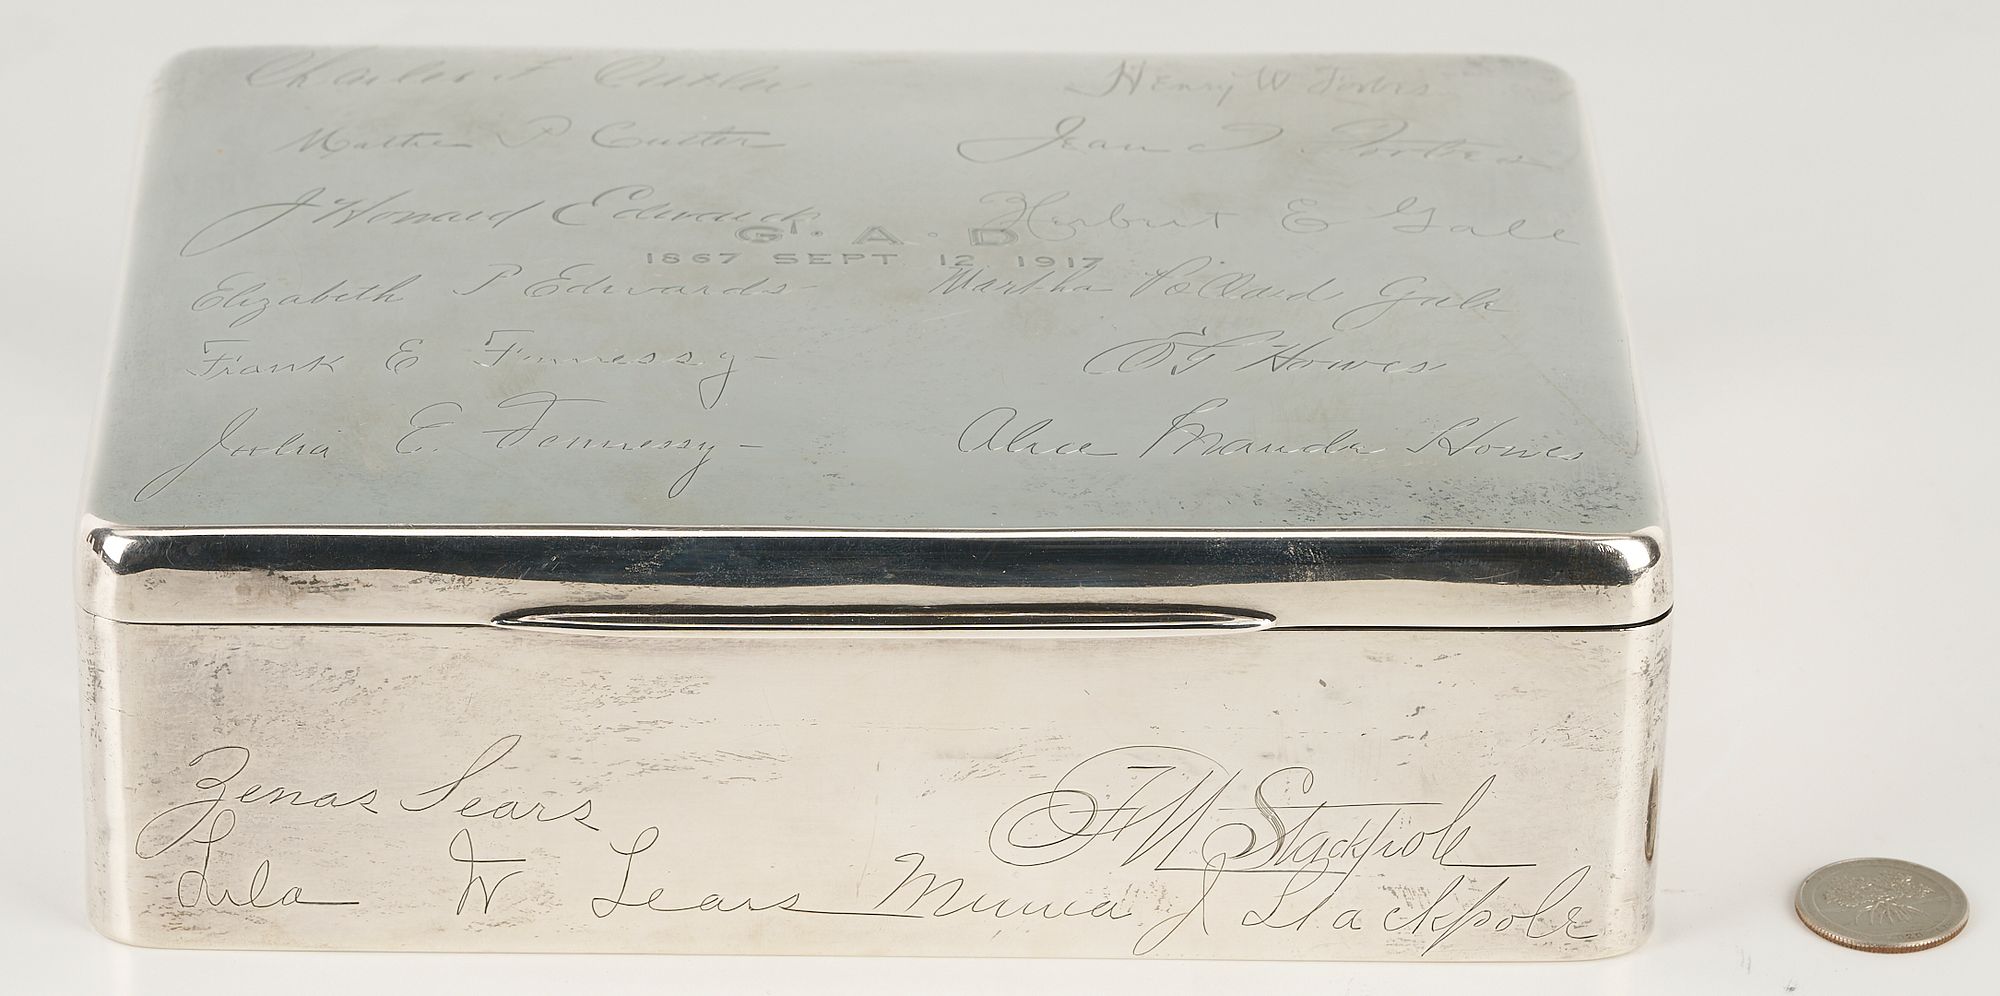 Charles F Cutler
Henry W Forbes
Martha P Cutler
Jean Forbes
J Howard Edwards
Herbert E Gale
G. A. D
1867 SEPT 12 1917
Elizabeth P Edwards
Martha Pollard Gale
Frank E Fennessy
Howes
Julia E. Fennessy
Alice Maude Howes
Zenas Sears
F M Stackpole
Lula W Sears
Minnie J Stackpole